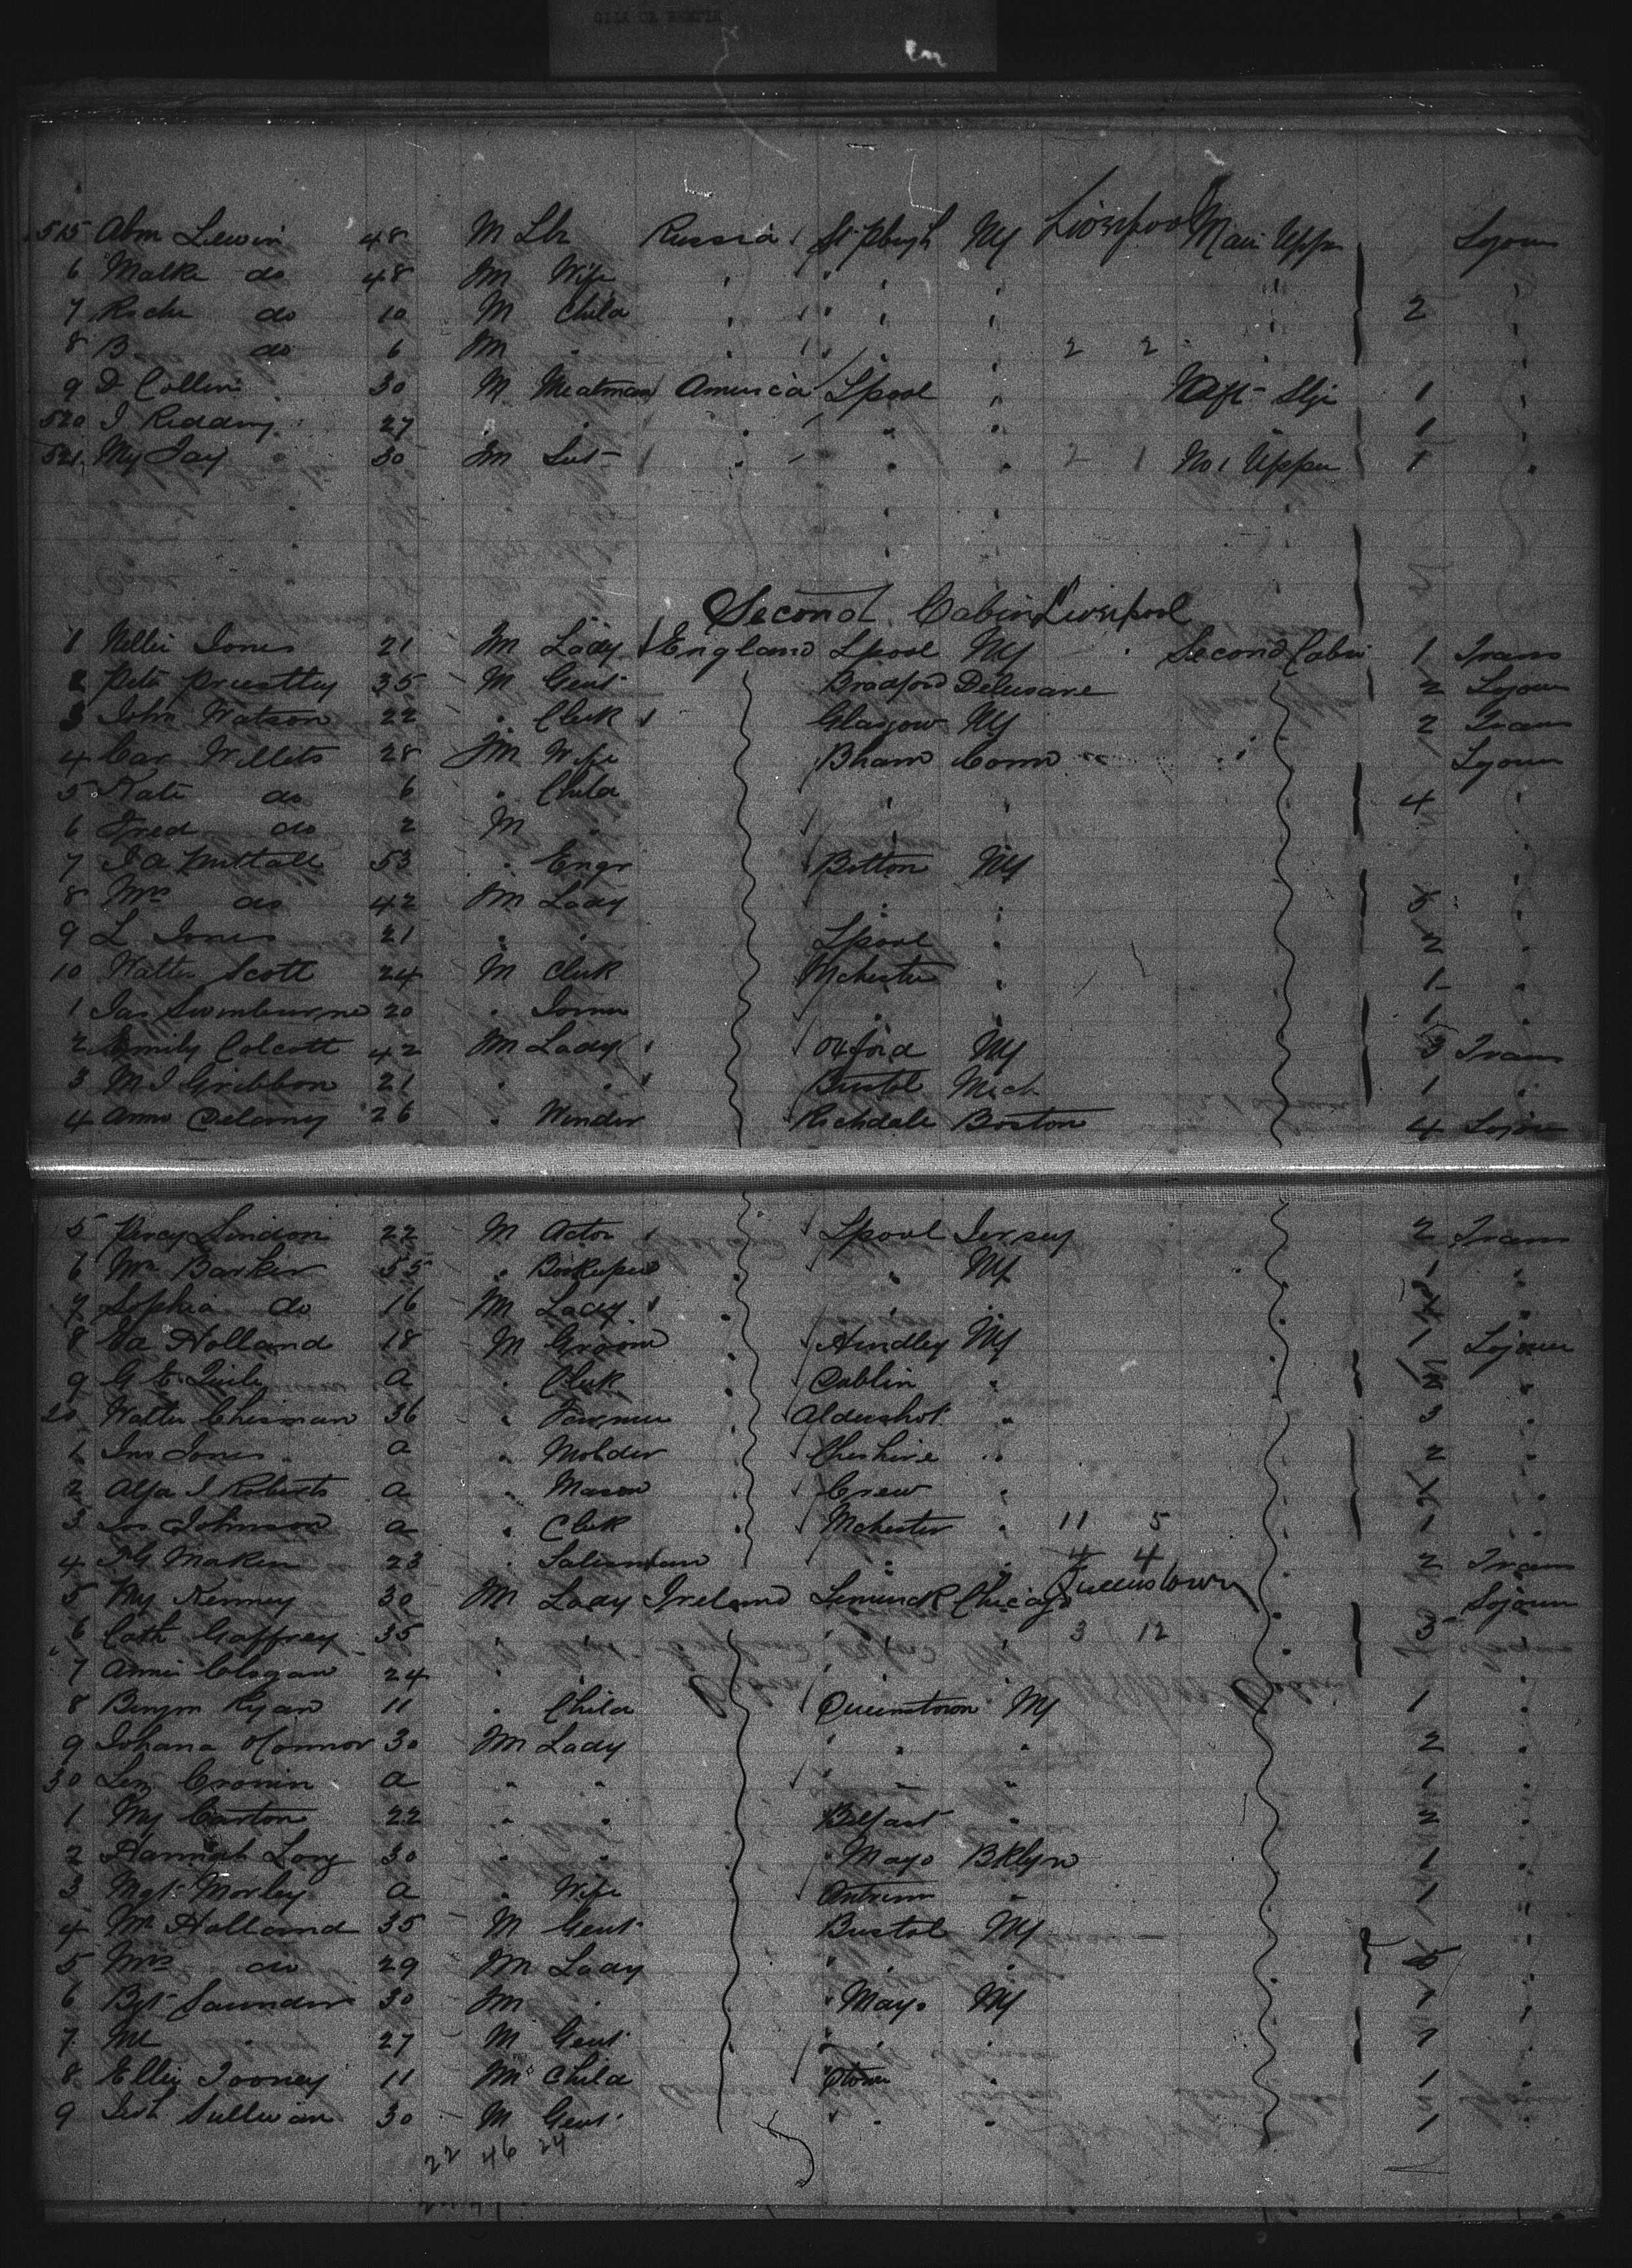 515 Abm Lewin 48 M Lbr Russia St Pbugh NY Liverpool Main Upper Sojourn
6 Malke do 48 M Wife " " " "
7 do 10 M Child " " " " 2 "
8 B do 6 M " " " " 2 2 " "
9 D Collin 30 M Meatman America Lpool " Aft 1 "
520 J Redding 27 " " " " " 1
521 My Jay 30 M " " " 2 1 No 1 Upper 1 "
Second Cabin Liverpool
1 Nellie Jones 21 M Lady England Lpool NY Second Cabin 1 Trans
2 Pete Priestley 35 M Gent Bradford Deleware 2 Sojourn
3 John Watson 22 " Clerk Glasgow NY 2 Trans
4 Car Willets 28 M Wife Bham Conn Sojourn
5 Kate do 6 " Child " " 4 "
6 Fred do 2 M " " "
7 J A Nuttall 53 " Engr Bolton NY "
8 Mrs do 42 M Lady " " 5 "
9 L Jones 21 " " Lpool " 2 "
10 Walter Scott 24 M Clerk Mchester " 1 "
1 Jas Swinburne 20 " Joiner " " 1 "
2 Emily Colcott 42 M Lady Oxford NY 3 Trans
3 M J Gribbon 21 " " Bristol Mich 1 "
4 Anne Delany 26 " Winder Rochdale Boston 4 Sojour
5 Percy Lindon 22 M Actor Lpool Jersey 2 Trans
6 Mr Barker 55 " Bookeeper " NY 1 "
7 Sophia do 16 M Lady " " "
8 Holland 18 M Groom Hindley NY 1 Sojourn
9 G E a " Clerk Dublin " 2 "
20 Walter Chisman 36 " Farmer Aldershot " 3 "
1 Jno Jones a " Molder Cheshire " 2 "
2 Alfd J Roberts a " Mason Crew " 1 "
3 Jos Johnson a " Clerk Mchester " 11 5 1 "
4 Maken 23 " Salesman " " 4 4 2 Trans
5 My Kenney 30 M Lady Ireland Limerick Chicago Queenstown Sojourn
6 Cath Gaffrey 35 " " " " 3 12 3 "
7 Annie Clogan 24 " " " "
8 Benjm Ryan 11 " Child Queenstown NY 1 "
9 Johana OConnor 30 M Lady " " 2 "
30 Cronin a " " " " 1 "
1 My Carton 22 " " Belfast " 2 "
2 Hannah Long 30 " " Mayo BKlyn 1 "
3 Mgt Morley a " Wife Antrim " 1 "
4 Mr Holland 35 M Gent Bristol NY "
5 Mrs do 29 M Lady " " 5 "
6 Bgt Saunders 30 M " Mayo NY 1 "
7 Ml " 27 M Gent " " 1 "
8 Ellie Tooney 11 M Child Qtown " 1 "
9 Sullivan 30 M Gent " " 1 "
22 46 24